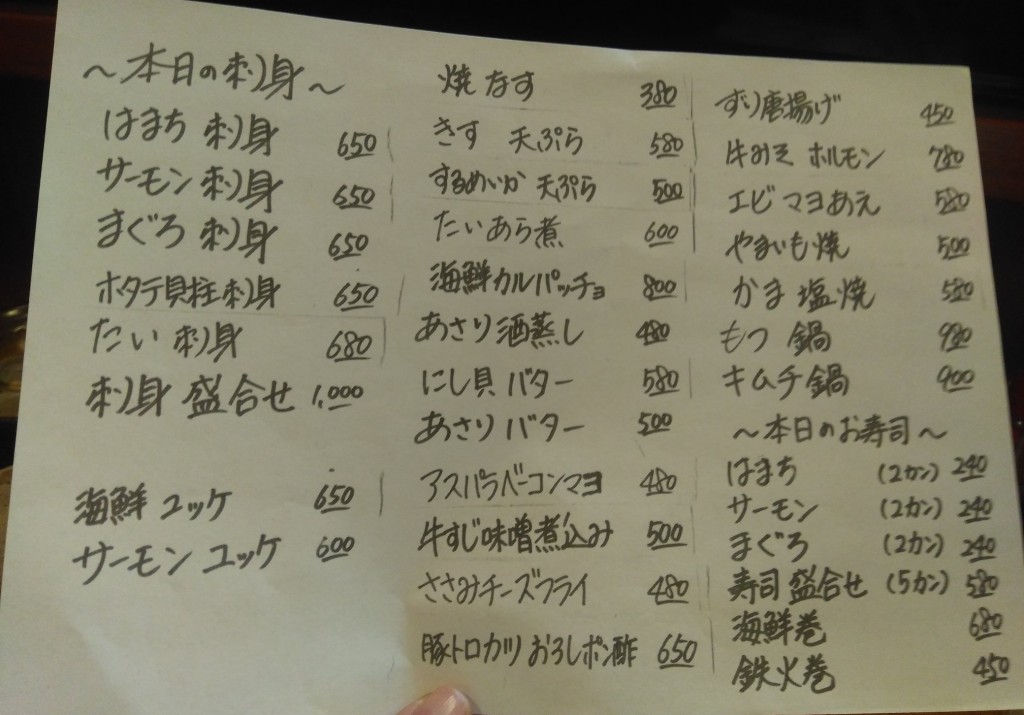 ～本日の刺身～
はまち 刺身 650
サーモン 刺身 650
まぐろ 刺身 650
ホタテ貝柱刺身 650
たい 刺身 680
刺身 盛合せ 1,000
海鮮 ユッケ 650
サーモン ユッケ 600
焼なす 380
きす 天ぷら 580
するめいか 天ぷら 500
たいあら煮 600
海鮮カルパッチョ 800
あさり酒蒸し 480
にし貝 バター 580
あさり バター 500
アスパラベーコンマヨ 480
牛すじ味噌煮込み 500
ささみチーズフライ 480
豚トロカツ おろしポン酢 650
ずり唐揚げ 450
牛みそ ホルモン 780
エビ マヨあえ 580
やまいも焼 500
かま 塩焼 580
もつ 鍋 980
キムチ鍋 900
～本日のお寿司～
はまち (2カン) 240
サーモン (2カン) 240
まぐろ (2カン) 240
寿司 盛合せ (5カン) 580
海鮮巻 680
鉄火巻 450